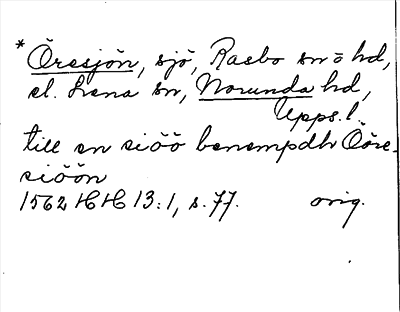 *Öresjön, sjö, Rasbo sn o hd,
el. Lena sn, Norunda hd,
Upps.l.
till en siöö benempdh Ööre-
siöön
1562 HH 13:1, s. 77. orig.